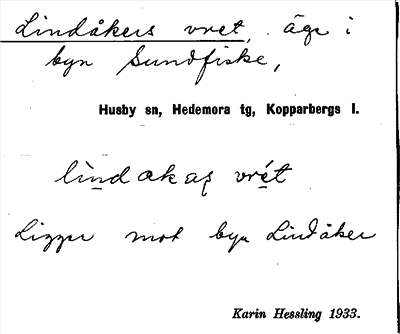 Lindåkers vret, äga i
byn Sundfiske,
Husby sn, Hedemora tg, Kopparbergs l.
lindakas vrét
Ligger mot byn Lindåker
Karin Hessling 1933.